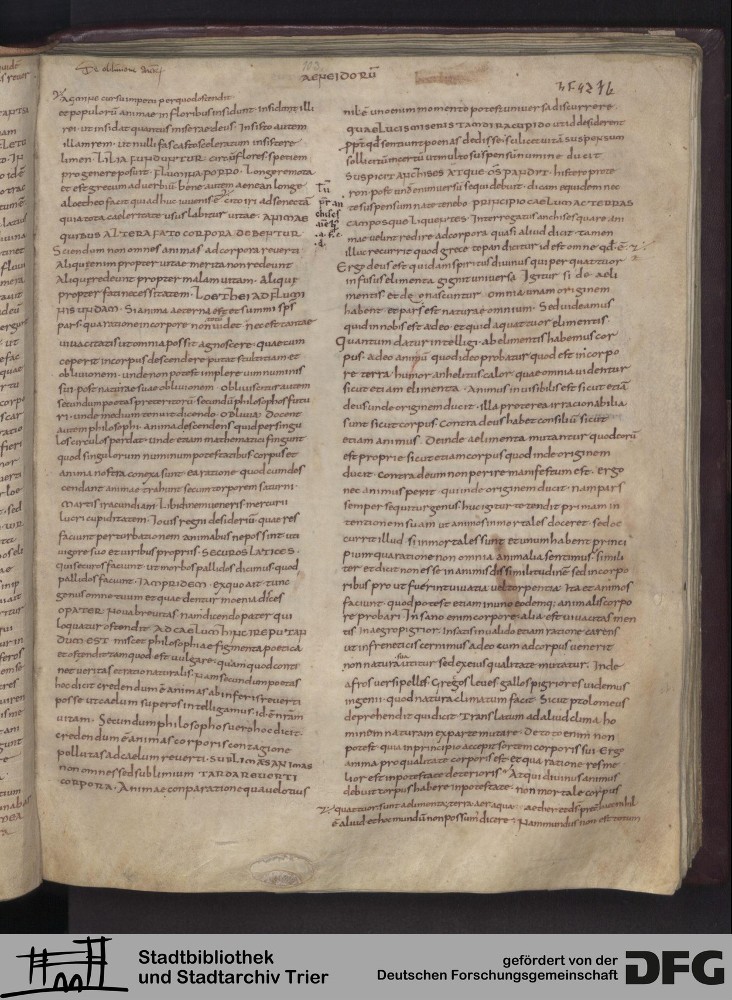 De oblivione
AENEIDORŪ
et populorū animae in floribus insidunt. insidant illi
rei. ut insidat quantus miserae deus. Insisto autem
illam rem. ut nulli fas casto sceleratum insistere
limen. LILIA FUNDUNTUR. circū flores. speciem
pro genere posuit. FLUMINA PORRO. Longe remota
et est graecum adverbiū bene autem aenean longe
QUIBUS ALTERA FATO CORPORA DEBENTUR
Sciendum non omnes animas ad corpora reverti
Aliquae enim propter vitae merita non redeunt
Aliquae redeunt propter malam vitam. Aliquae
propter fati necessitatem. LOETHEI AD FLUMI
NIS UNDAM. Si anima aeterna est et summi sps
pars. qua ratione in corpore non videt. nec est tantae
vivacitatis ut omnia possit agnoscere. quae cum
ceperit in corpus descendere potat stultitiam et
oblivionem. unde non potest implere vim numinis
sui post naturae suae oblivionem. Obliviscitur autem
secundum poetas preteritorū. secundū philosophos futu
ri. unde medium tenuit dicendo. OBLIVIA. Docent
autem philosophi. anima descendens quid per singu
los circulos perdat. unde etiam mathematici fingunt
quod singulorum numinum potestatibus corpus et
anima nostra conexa sunt. ea ratione quod cum des
cendunt animae trahunt secum torporem saturni.
Martis iracundiam. Libidinem veneris. mercurii
lucri cupiditatem. Iovis regni desideriū. quae res
faciunt perturbationem animabus ne possint uti
vigore suo et viribus propriis. SECUROS LATICES.
qui securos faciunt. ut morbos pallidos dicimus. quod
pallidos faciunt. IAMPRIDEM. ex quo ait. tunc
O PATER.
loquatur ostendit. AD CAELUM HINC IRE PUTAN
DUM EST. miscet philosophiae figmenta poetica
et ostendit tam quod est vulgare. quam quod conti
net veritas et ratio naturalis. Nam secundum poetas
hoc dicit. credendum ē animas ab inferis reverti
posse
vitam. Secundum philosophos vero hoc dicit.
credendum ē animas corporis contagione
pollutas ad caelum reverti. SUBLIMES ANIMAS
non omnes sed sublimium. TARDA REVERTI
CORPORA.
nihil ē uno enim momento potest universa discurrere.
QUAE LUCIS MISERIS TAM DIRA CUPIDO
SUSPICIT ANCHISES ATQUE
ron. post unde universu sequi debuit. dicam equidem nec
te suspensum nate tenebo. PRINCIPIO CAELUM AC TERRAS
CAMPOSQUE LIQUENTES. Interrogatus anchises quare ani
mae velint redire ad corpora. quasi aliud dicit. tamen
illuc recurrit quod grece to pan dicitur id est omne qd ē.
Ergo deus est quidam spiritus divinus qui per quattuor
infusus elementa gignit universa. Igitur si de aeli
mentis et deo nascuntur omnia unam originem
habent. et par est natura omnium. Sed videamus
quid in nobis est a deo. et quid a quattuor elimentis.
Quantum datur intelligi. ab elimentis habemus cor
pus. a deo animū quod ideo probatur quod est in corpo
re terra. humor. anhelitus calor. quae omnia videntur
sicut etiam elimenta. Animus invisibilis est sicut etiā
deus unde originem ducit. illa preterea irrationabilia
sunt sicut corpus. Contra deus habet consiliū sicut
etiam animus. Deinde aelimenta mutantur quodorū
est proprie sicut etiam corpus quod inde originem
ducit. Contra deum non perire manifestum est. ergo
nec animus perit. qui inde originem ducit. nam pars
semper sequitur genus. huc igitur tetendit primam in
tentionem suam ut animos inmortales doceret. sed oc
currit illud. si inmortales sunt et unum habent princi
pium qua ratione non omnia animalia sentimus. simili
ter et dicit non esse in animis dissimilitudinē sed in corpo
ribus. pro ut fuerint vivatia vel torpentia. Ita et animos
faciunt. quod potest etiam in uno eodemq; animalis corpo
re probari. In sano enim corpore alia est vivacitas men
tis. in aegro pigrior. In satis invalido etiam ratione carens
ut in freneticis cernimus. adeo cum ad corpus venerit
non natura sua utitur. sed ex eius qualitate mutatur. Inde
afros versipelles. Gregos leves. gallos pigriores videmus
ingenii. quod natura climatum facit. Sicut ptolomeus
deprehendit qui dicit. Translatum ad aliud clima. ho
minem naturam ex parte mutare. De toto enim non
potest. quia in principio accepit sortem corporis sui. Ergo
anima pro qualitate corporis est. et qua ratione res me
lior est in potestate deterioris. Atqui divinus animus
debuit corpus habere in potestate. non mortale corpus
quattuor sunt aelimenta. terra aer aqua aether
ē aliud ec hoc mundū non possum dicere. Nam mundus non est totum
Stadtbibliothek
und Stadtarchiv Trier
gefördert von der
Deutschen Forschungsgemeinschaft
DFG